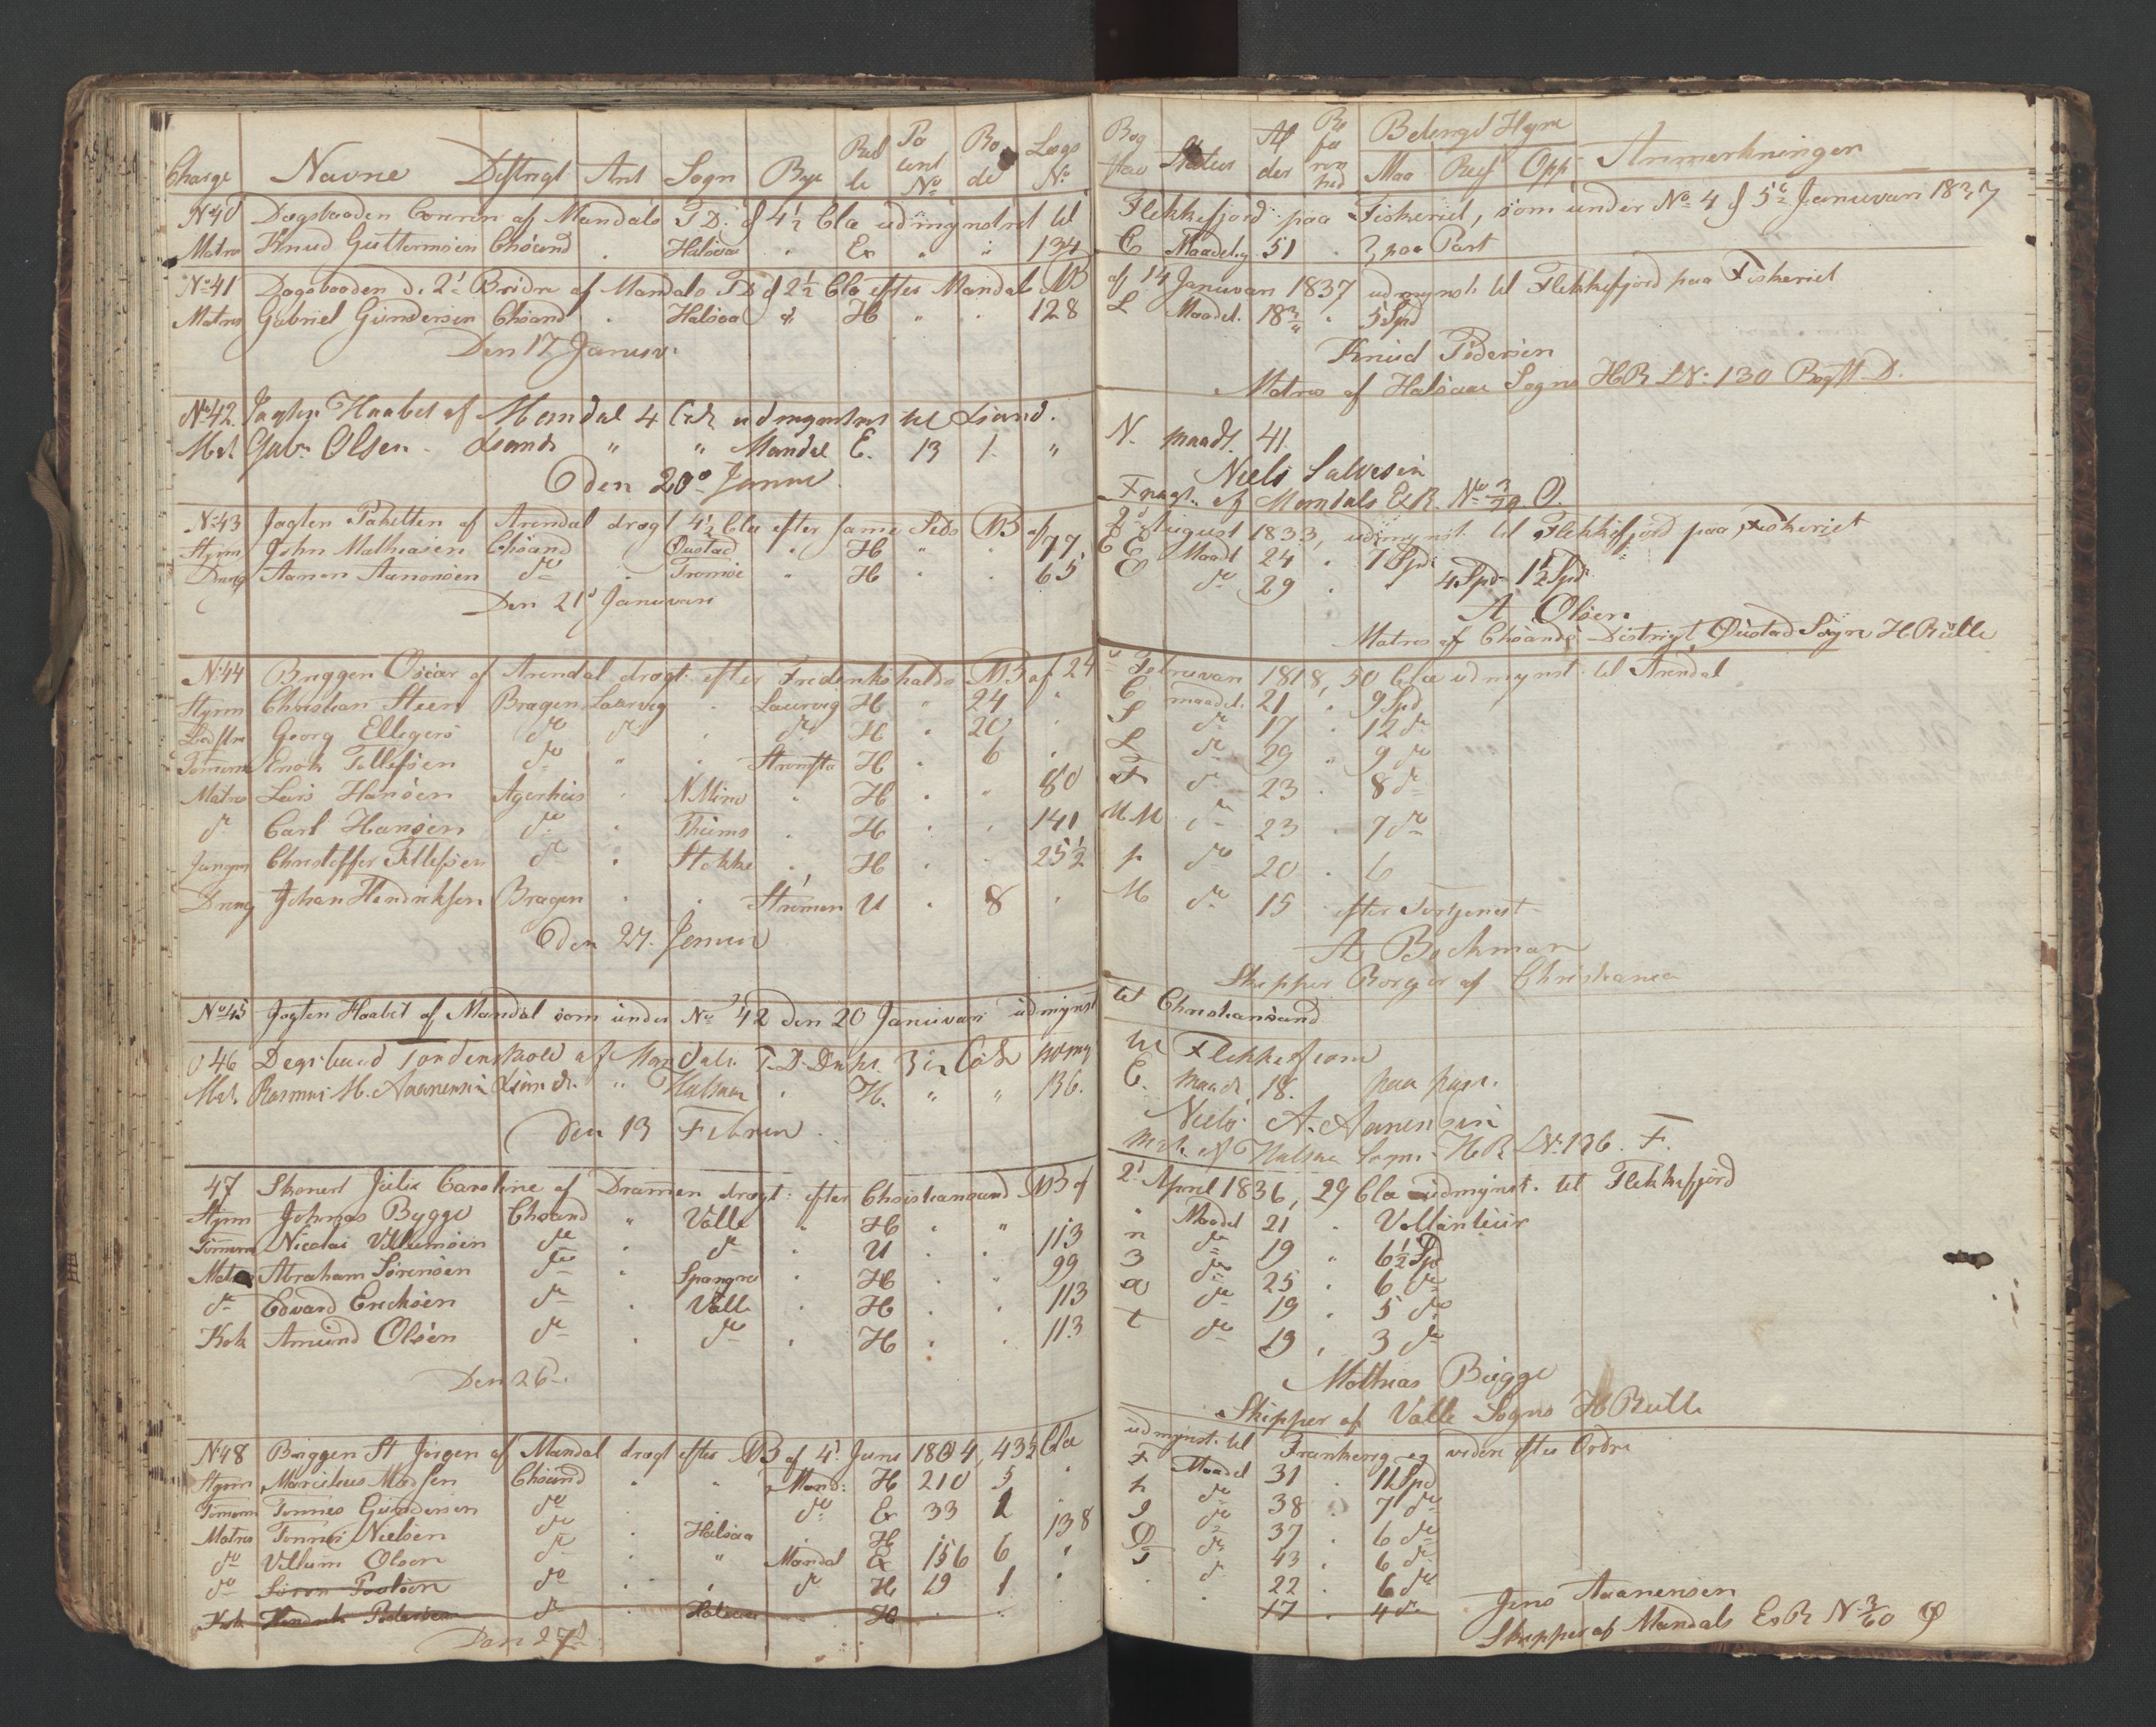 Charge Navne Distrigt Amt Sogn Bye Rul le Pa tent No Ro de Lægs No
No 40 Dægsbaaden af Mandals T D: d 4½ Cla udmynstret til
Matros Knud Guttormsen Chsand . Halsaa " Ex " " 134
No 41 Dagsbaaden de 2de Brödre af Mandals T D d 2½ Cla efter Mandals MB
Matros Gabriel Gundersen Chsand . Halsaa " H " . 128
Den 17 Januv:
No 42. Jagten Haabet af Mandal 4 Cl udmynstret til Xsand.
Mat Gab. Olsen. Xsands " " Mandal E. 13 1. "
den 20de Janua
No 43 Jagten Paketten af Arendal drægt 4½ Cla efter samme Steds MB af
Styrm John Mathiasen Chsand . Öiestad . H " . 77.
Dreng Aanon Aanonsen do . Tromöe " H . . 65
Den 21de Januvari
No 44 Briggen Oscar af Arendal drægt efter Fredrikshalds MB af 24
Styrm Christian Steen Bragen Laurvig . Laurvig H " 24 "
Georg Ellegers do do . do H . 20 .
Tömmerm Enok Tellefsen do " . Strömsöe H . 6 .
Matros Lars Hansen Agerhuus . H . " 80
do Carl Hansen do . . H . . 141
Jungm Christoffer Tellefsen do . Stokke . H . . 25½
Dreng Johan Hendriksen Bragen . . Strömen U . 8 .
den 27. Januar
No 45 Jagten Haabet af Mandal som under No 42 den 20 Januvari udmynst
No 46 Tordenskiold af Mandals T. D. 3½ Cl
Mat. Rasmus M. Aanensen Xsands. " Halsaa . H. " " 136.
den 13 Februar.
47 Skonert Julie Caroline af Drammen drægt: efter Christiansand MB af
Styrm Johnas Bygge Chsand " Valle " H . " 113
Tömmerm Nicolai Villumsen do . do . U . . 99
Matros Abraham Sörensen do . Spangre . H . " 113
do Edvard Ericksen do . Valle . H . . 113
Kok Amund Olsen do . do . H . .
Den 26de
No 48 Briggen St Jörgen af Mandal drægt efter MB af 4de Juni 1804, 43½ Cla
Styrm Marcelius Madsen Chsand . " Mand: H 210 5 "
Tömmerm Tönnes Gundersen do . . do Ex 33 1 .
Matros Tönnes Nielsen do . Halsaa . H 138
do Villum Olsen do . " Mandal Ex 156 6 "
do Sören Poulsen do . " do H 19 1 "
Kok Hendrik Pedersen do . Halsaa . H . .
Den 27de
Bog stav Status Al der Be fa ren hed Betinget Hyre Maa Reis Opp Anmerkninger
Flekkefjord paa Fiskeriet, som under No 4 d 5te Januvari 1837
C Maadelig 51 . paa Part
af 14 Januvari 1837 udmynst: til Flekkefjord paa Fiskeriet
L Maadel. 18 . 5 Spd
Knud Pedersen
Matros af Halsaae Sogns HR LNo 130 Bogst D.
N. maadl. 41
Niels Salvesen
af Mandals ExR. No O.
2de August 1833, udmynst: til Flekkefjord paa Fiskeriet
E Maadl 24 . 7 Spd
E do 29 . " 4 Spd 1½ Spd
A Olsen
Matros af Chsands Distrigt Öiestad Sogn H Rulle
Februari 1818, 50 Cla udmynst: til Arendal
C maadel. 21 . 9 Spd
S do 17 . 12 do
L do 29 " 9 do
F do 23 . 8 do
M M do 23 . 7 do
f do 20 . 6
M do 15 . efter Fortjenest
A Bockman
Skipper Borger af Christiania
til Christiansand
til Flekkefiord
E. maadl 18. paa part.
Niels A. Aanensen
af Halsaa Sogn. H R LN. 136. F.
2de April 1836, 29 Cla udmynst. til Flekkefjord
" Maadel 21 . Vollentair
n do 19 " 6½ Spd
3 do 25 . 6 do
a do 19 . 5 do
t do 19 . 3 do
Mathias Bugge
Skipper af Valle Sogns H Rulle
udmynst: til Frankerig og videre efter Ordre
F Maadel 31 . 11 Spd
h do 38 . 7 do
J do 37 . 6 do
D do 43 . 6 do
. do 22 . 6 do
. 17 . 4 do
Jens Aanensen
Skipper af Mandals Ex R N 3/60 Φ